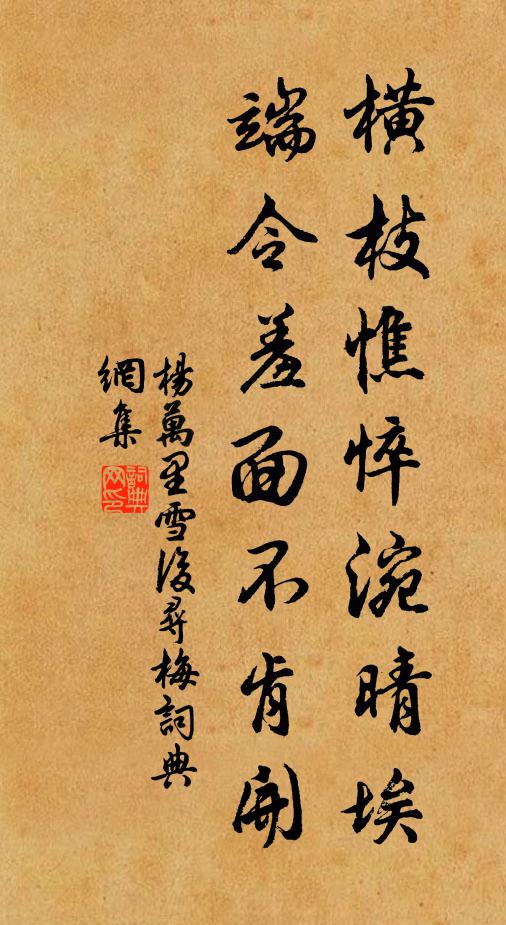 橫枝憔悴涴晴埃
端令羞面不肯開
楊萬里雪後尋梅詞典
網集
詞典
网印